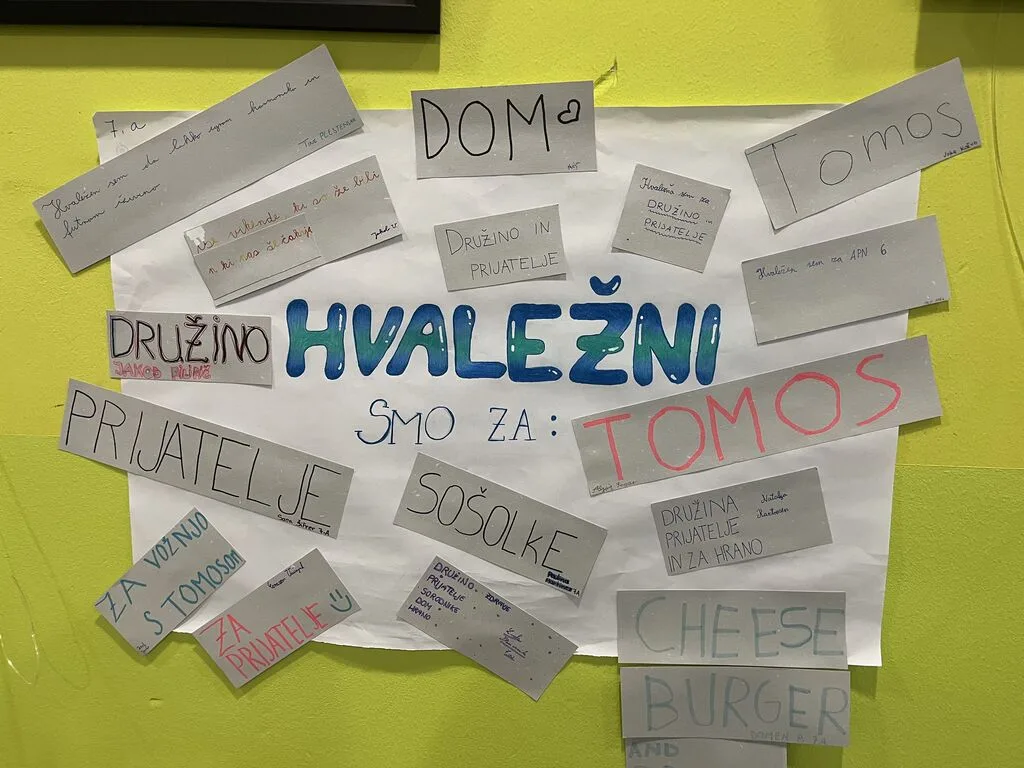 7. a
Hvaležen sem da lahko igram harmoniko in
TINE PLESTENJAK
DOM
TOMOS
vse vikende, ki so že bili
n ki nas še čakajo
Jakob
DRUŽINO IN
PRIJATELJE
Hvaležna sem za
DRUŽINO in
PRIJATELJE
Hvaležen sem za APN 6
DRUŽINO
JAKOB
HVALEŽNI
SMO ZA:
TOMOS
PRIJATELJE
7.A
SOŠOLKE
7.A
DRUŽINA
PRIJATELJE
IN ZA HRANO
Nataša
ZA VOŽNJO
S TOMOSOM
ZA
PRIJATELJE
DRUŽINO, ZDRAVJE
PRIJATELJE
SORODNIKE
DOM
HRANO
CHEESE
BURGER
DOMEN P. 7.A
AND